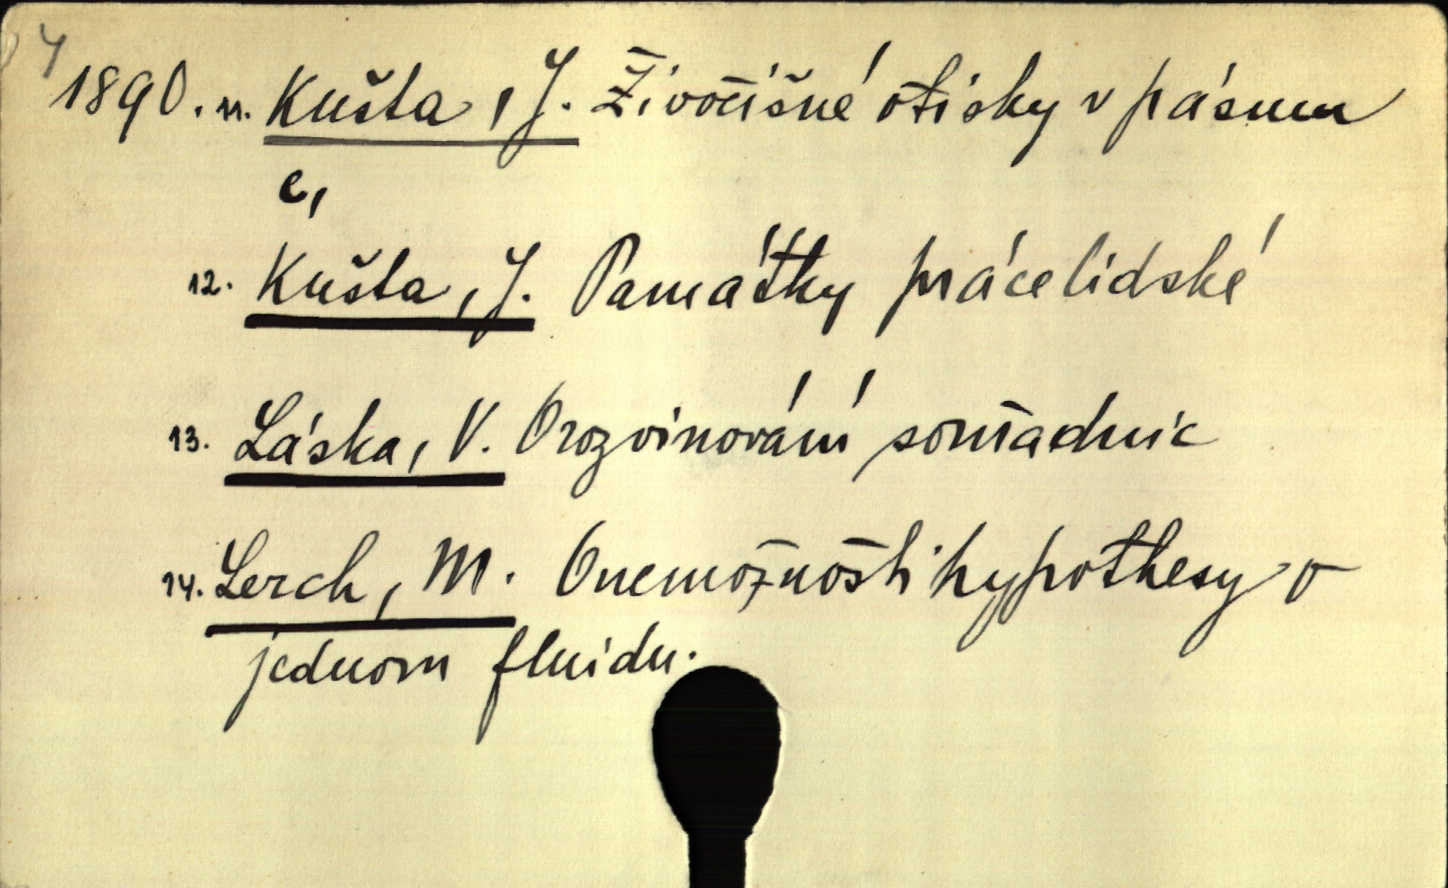 4
1890. 11. Kušta, J. Živočišné otisky v pásmu
c,
12. Kušta, J. Památky práce lidské
13. Láska, V. O rozvinování souřadnic
14. Lerch, M. O nemožnosti hypothesy o
jednom fluidu.